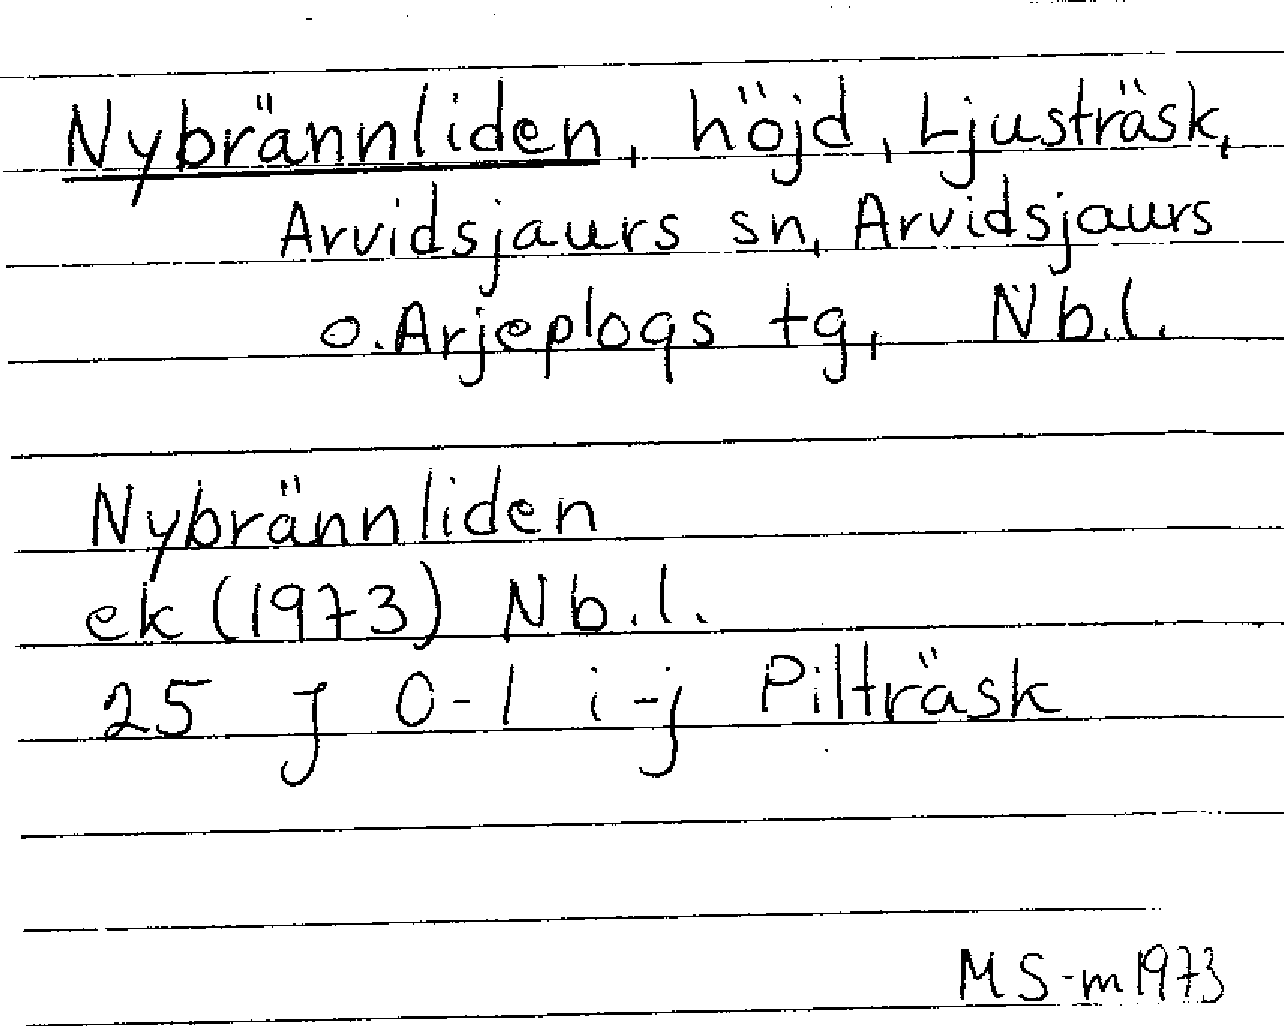 Nybrännliden, höjd, Ljusträsk,
Arvidsjaurs sn, Arvidsjaurs
o. Arjeplogs tg, Nb.l.
Nybrännliden
ek (1973) Nb.l.
25 J 0-1 i-j Pilträsk
MS-m 1973